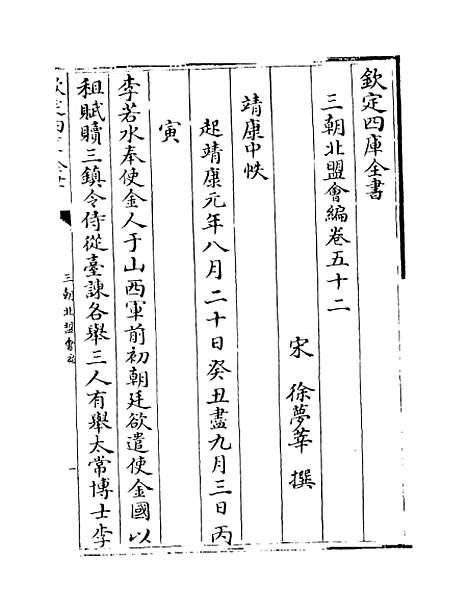 欽定四庫全書
三朝北盟會編卷五十二
宋 徐夢莘 撰
靖康中帙
起靖康元年八月二十日癸丑盡九月三日丙
寅
李若水奉使金人于山西軍前初朝廷欲遣使金國以
租賦贖三鎮令侍從臺諫各舉三人有舉太常博士李
欽定四庫全書
三朝北盟會編
一